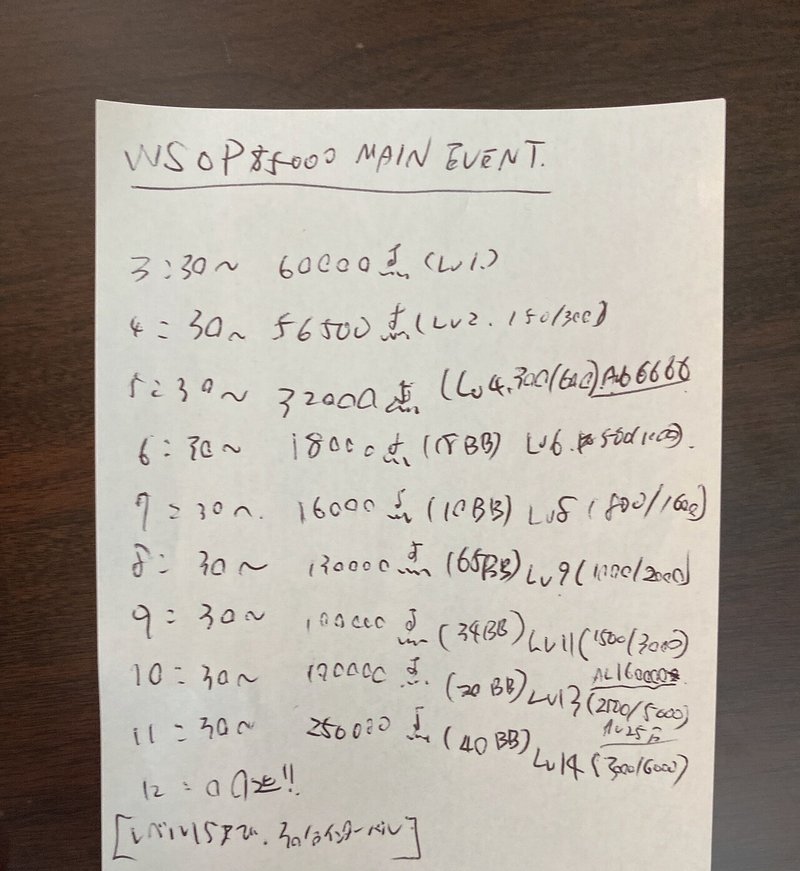 WSOP 85000 MAIN EVENT.
3:30~ 60000点 (Lv1.)
4:30~ 56500点 (Lv2. 150/300)
5:30~ 32000点 (Lv4. 300/600)
6:30~ 18000点 (18BB) Lv6. 500/1000).
7:30~. 16000点 (10BB) Lv8 (800/1600)
8:30~ 130000点 (65BB) Lv9 (1000/2000)
9:30~ 100000点 (34BB) Lv11 (1500/3000)
10:30~ 100000点. (20BB) Lv13 (2500/5000)
11:30~ 250000点 (40BB) Lv14 (3000/6000)
12:00迄!!
[レベル15まで、30分インターバル]